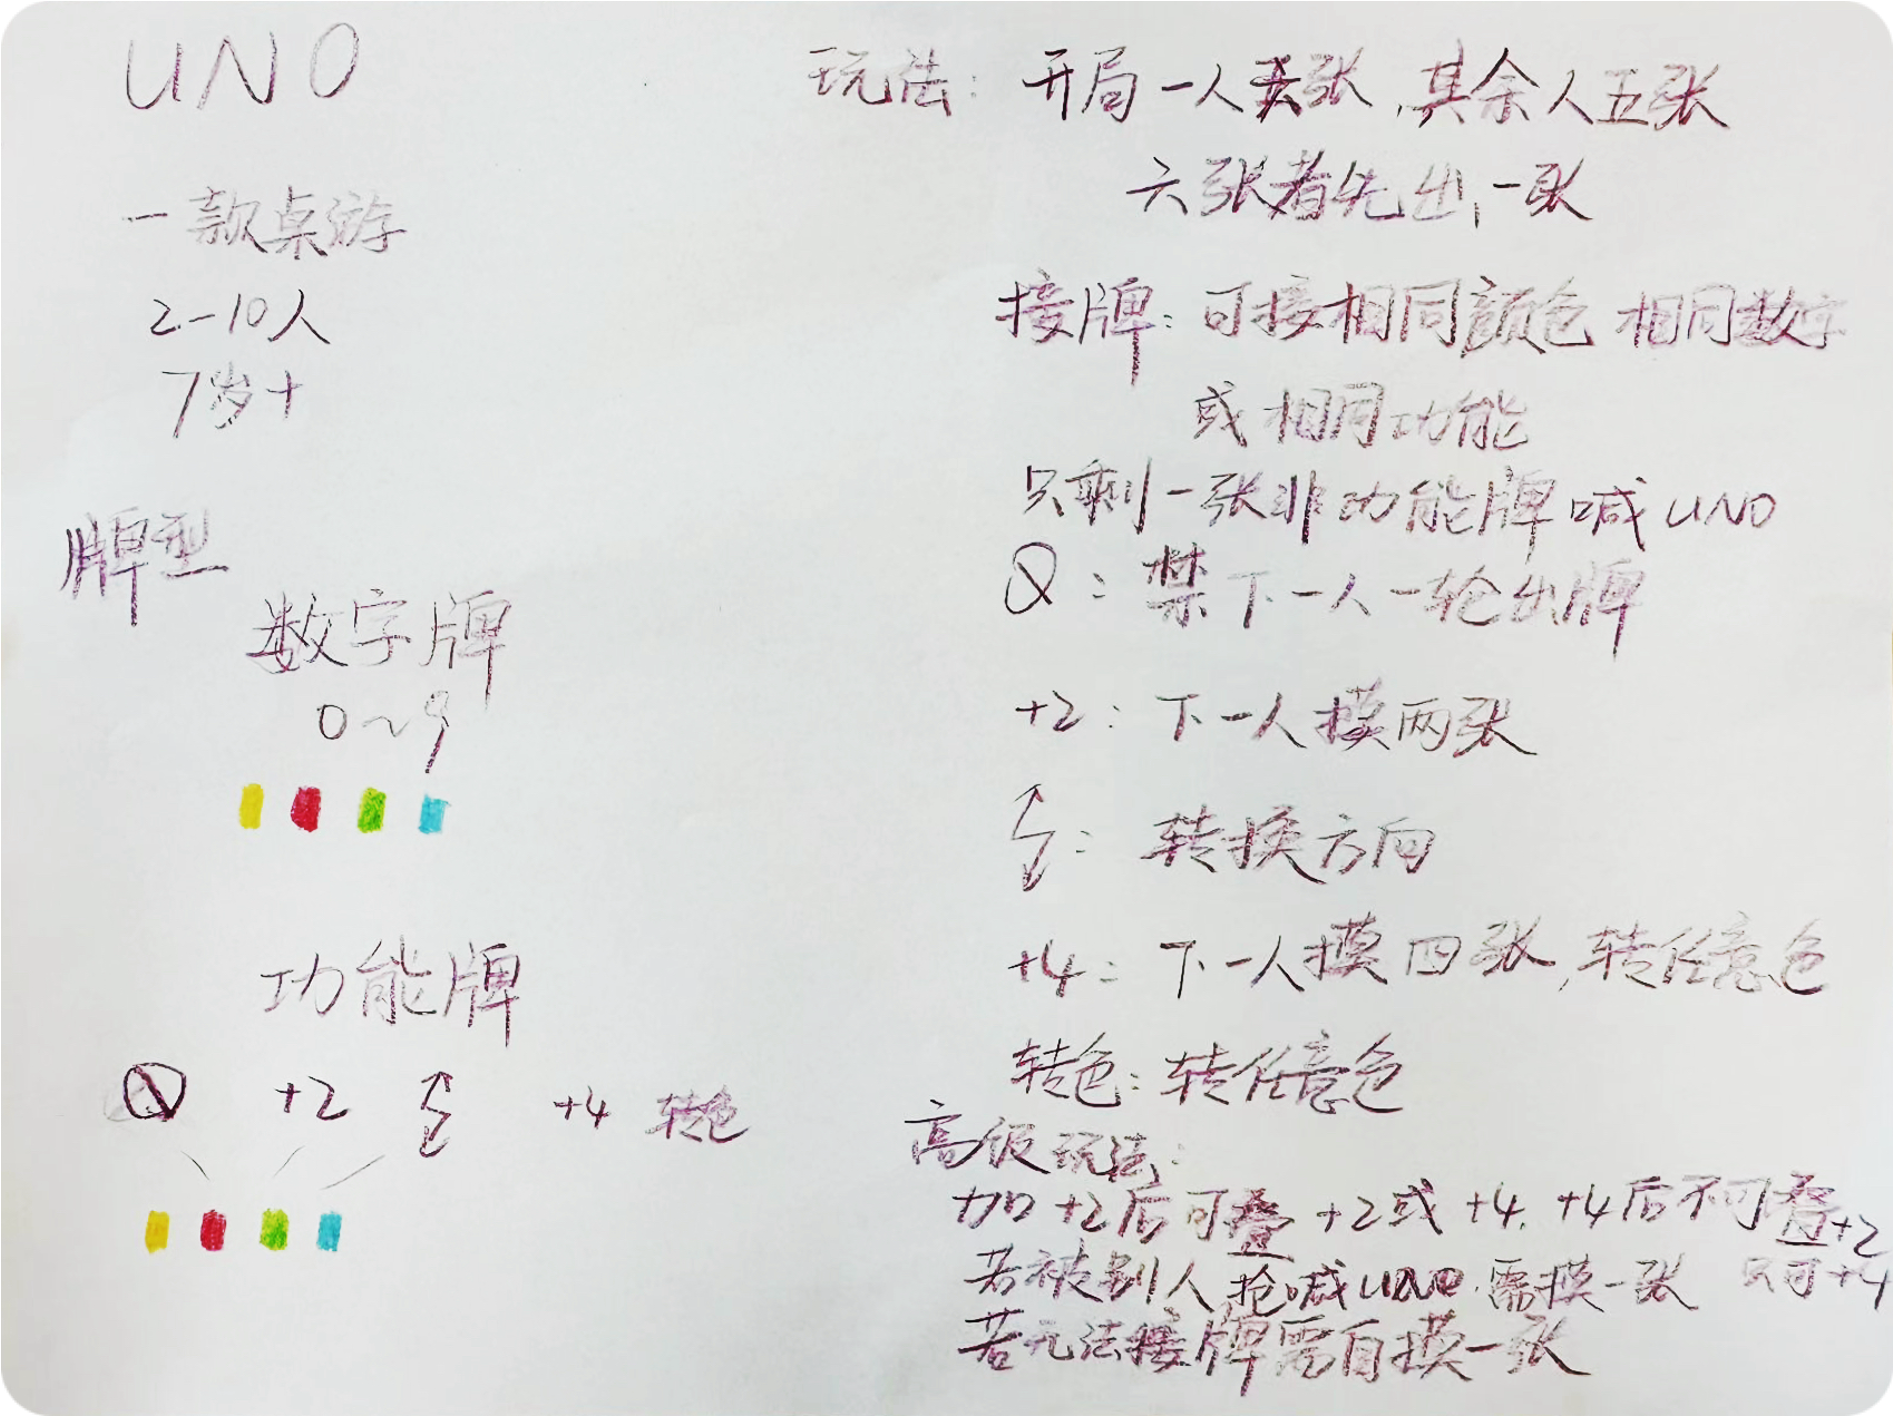 UNO
一款桌游
2-10人
7岁+
牌型
数字牌
0~9
功能牌
+2
+4 转色
玩法: 开局一人六张,其余人五张
六张者先出一张
接牌: 可接相同颜色 相同数字
或相同功能
只剩一张非功能牌喊UNO
: 禁下一人一轮出牌
+2: 下一人摸两张
: 转换方向
+4: 下一人摸四张,转任意色
转色: 转任意色
高级玩法:
加+2后可叠+2或+4. +4后不可叠+2
只可+4
若被别人抢喊UNO.需摸一张
若无法接牌需自摸一张